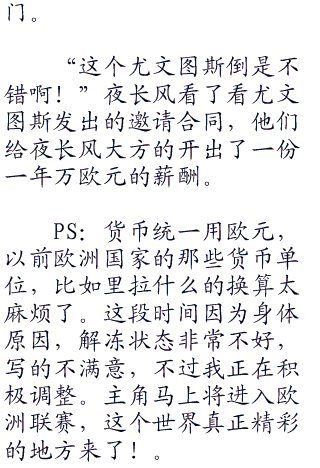 门。
“这个尤文图斯倒是不
错啊！”夜长风看了看尤文
图斯发出的邀请合同，他们
给夜长风大方的开出了一份
一年万欧元的薪酬。
PS：货币统一用欧元，
以前欧洲国家的那些货币单
位，比如里拉什么的换算太
麻烦了。这段时间因为身体
原因，解冻状态非常不好，
写的不满意，不过我正在积
极调整。主角马上将进入欧
洲联赛，这个世界真正精彩
的地方来了！。